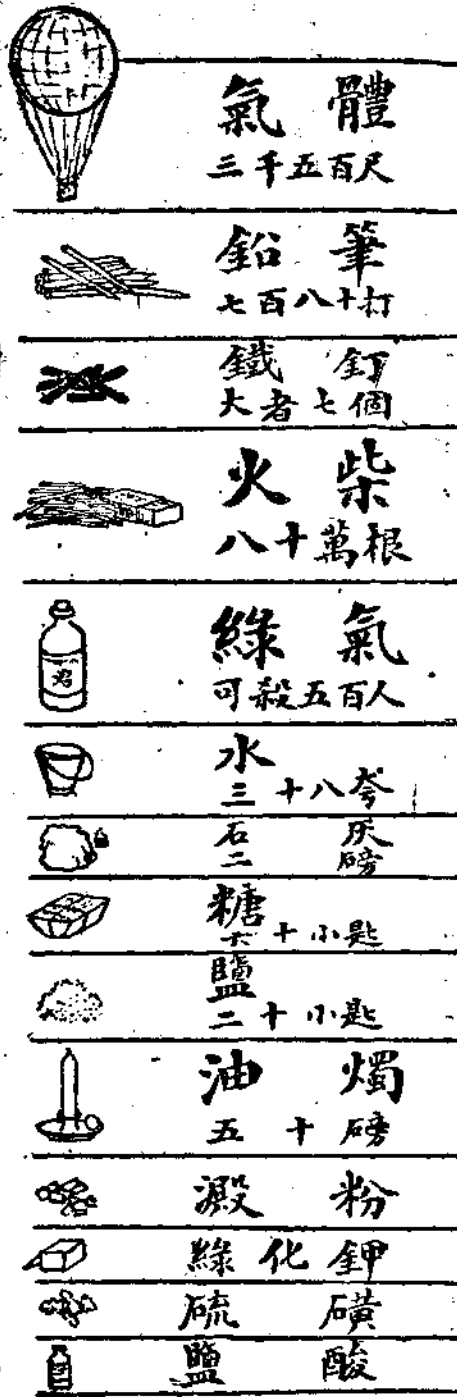 氣體
三千五百尺
鉛筆
七百八十打
鐵釘
大者七個
火柴
八十萬根
綠氣
可殺五百人
水
三十八夸
石灰
二磅
糖
六十小匙
鹽
二十小匙
油燭
五十磅
澱粉
綠化鉀
硫磺
鹽酸